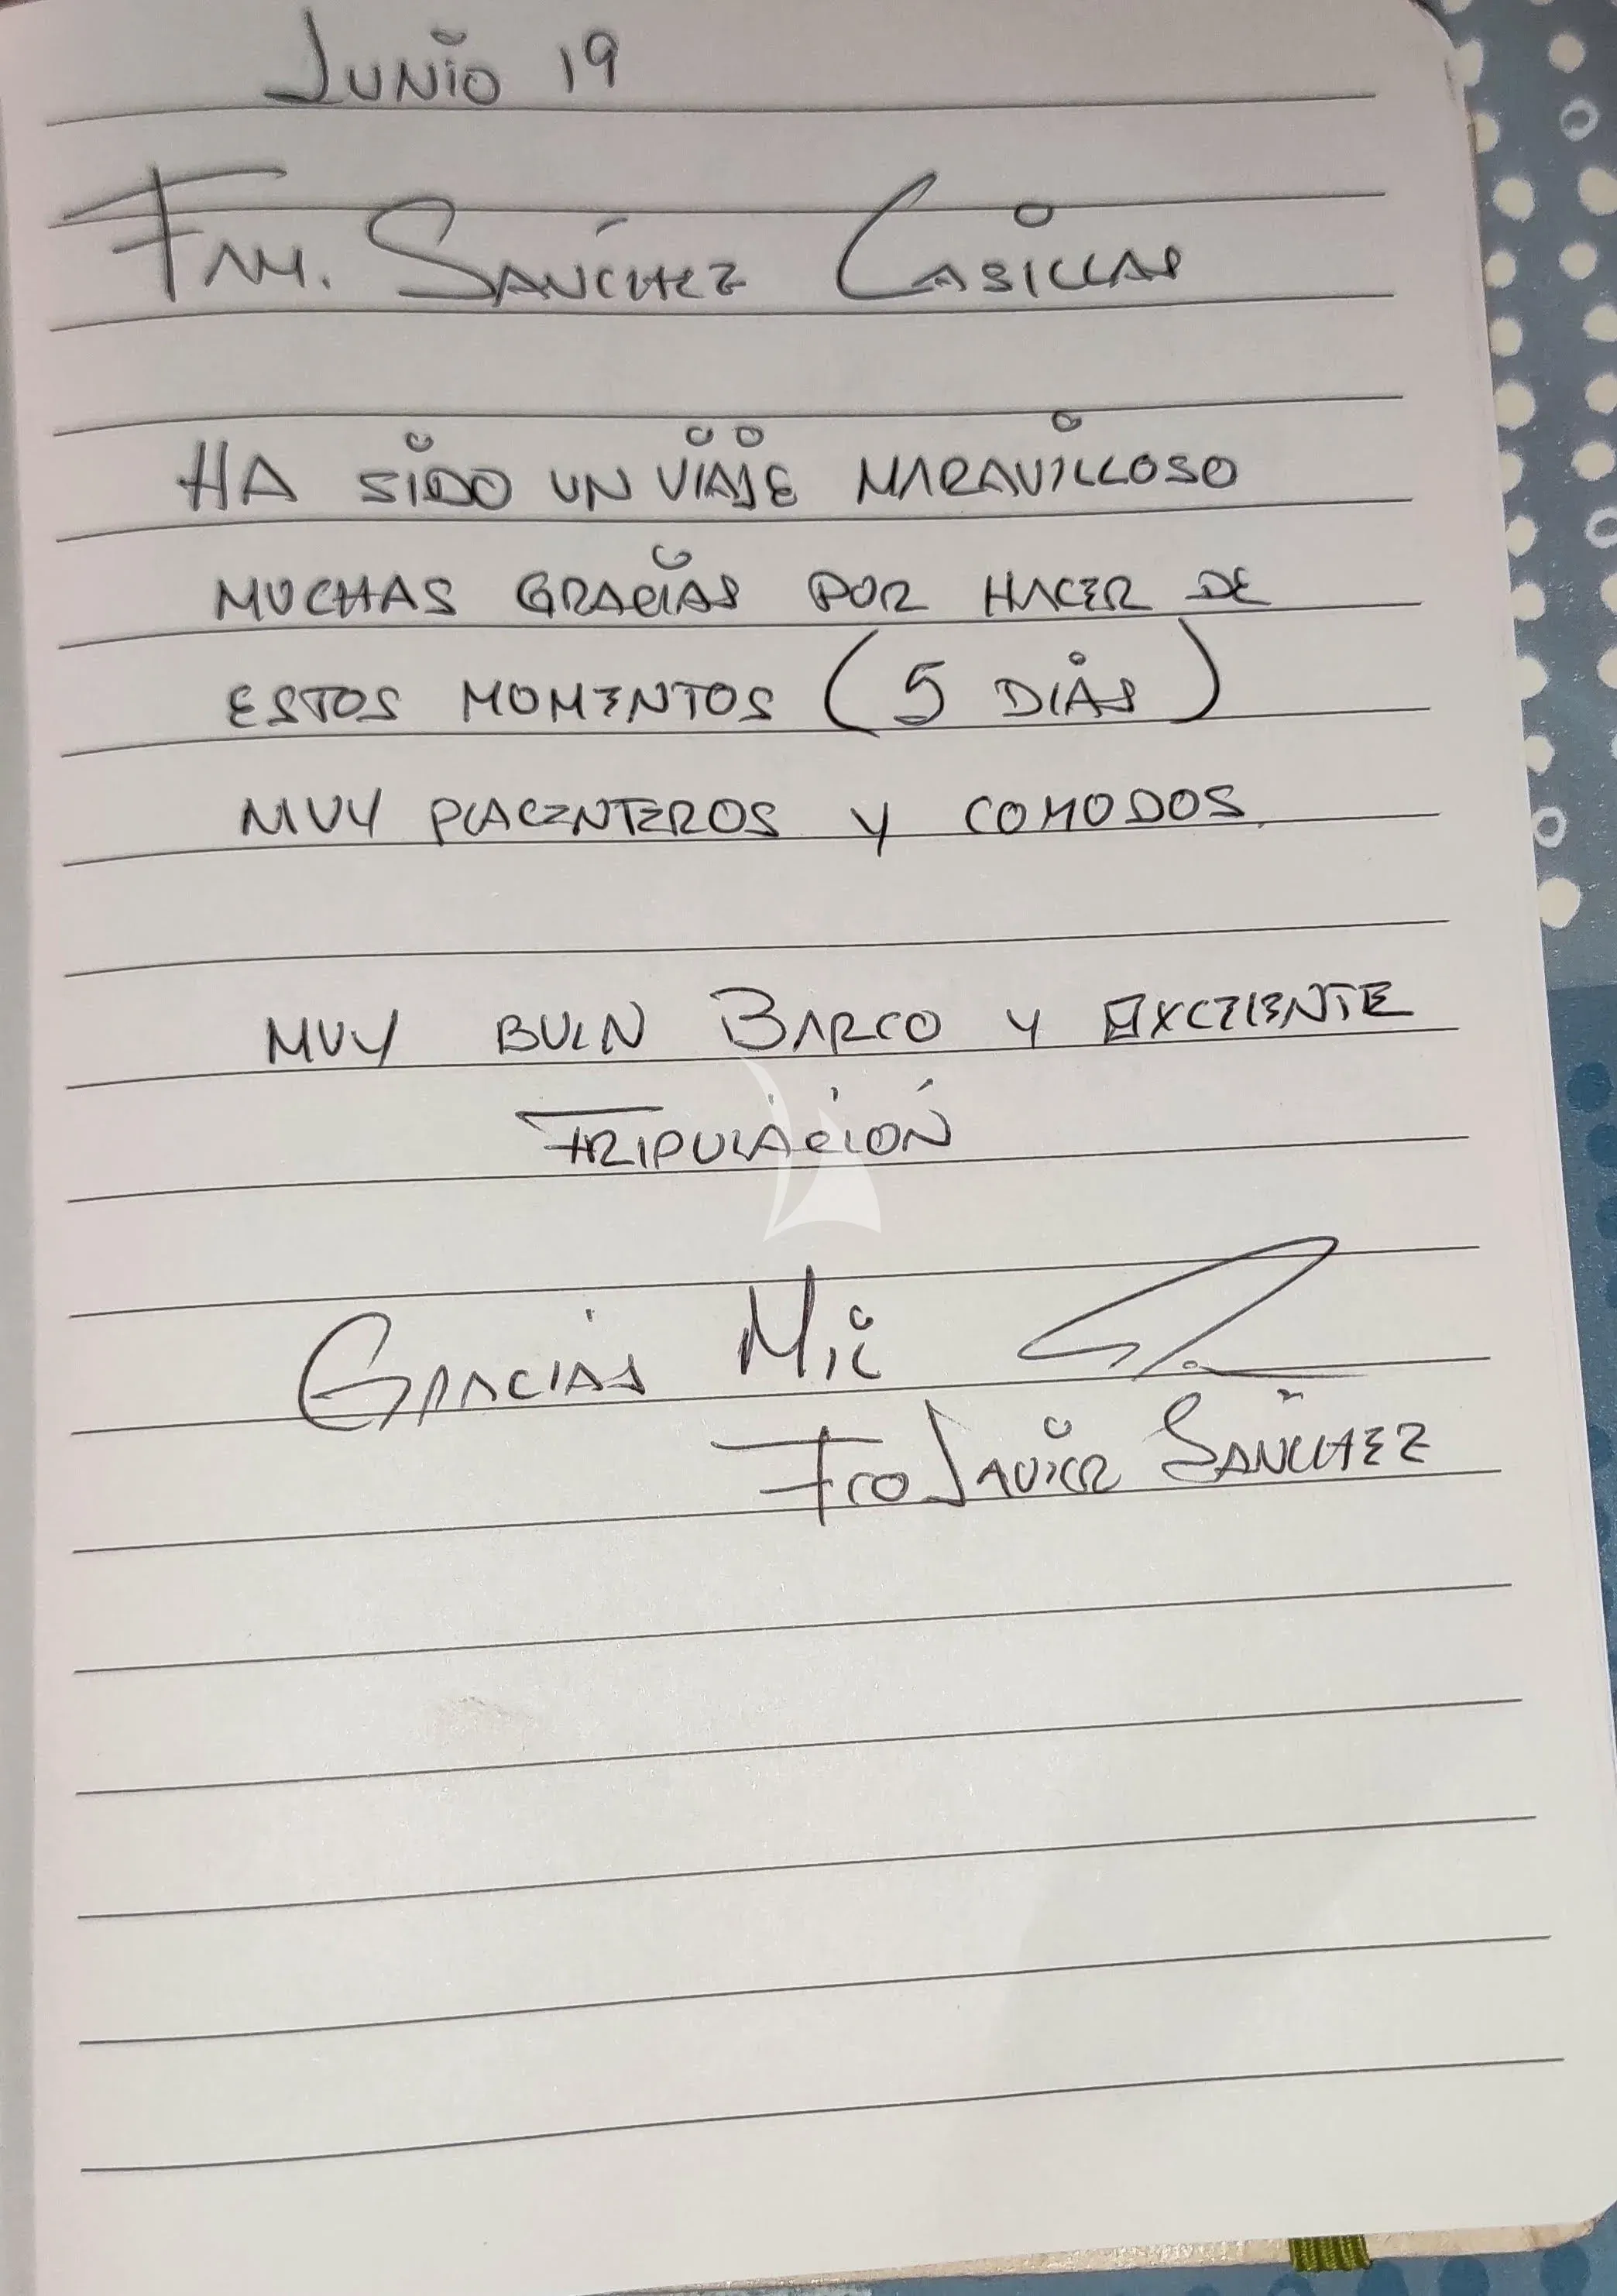 JUNIO 19
FAM. SÁNCHEZ CASILLAS
HA SIDO UN VIAJE MARAVILLOSO
MUCHAS GRACIAS POR HACER DE
ESTOS MOMENTOS (5 DIAS)
MUY PLACENTEROS Y COMODOS.
MUY BUEN BARCO Y EXCELENTE
TRIPULACIÓN
GRACIAS MIL
FCO JAVIER SANCHEZ